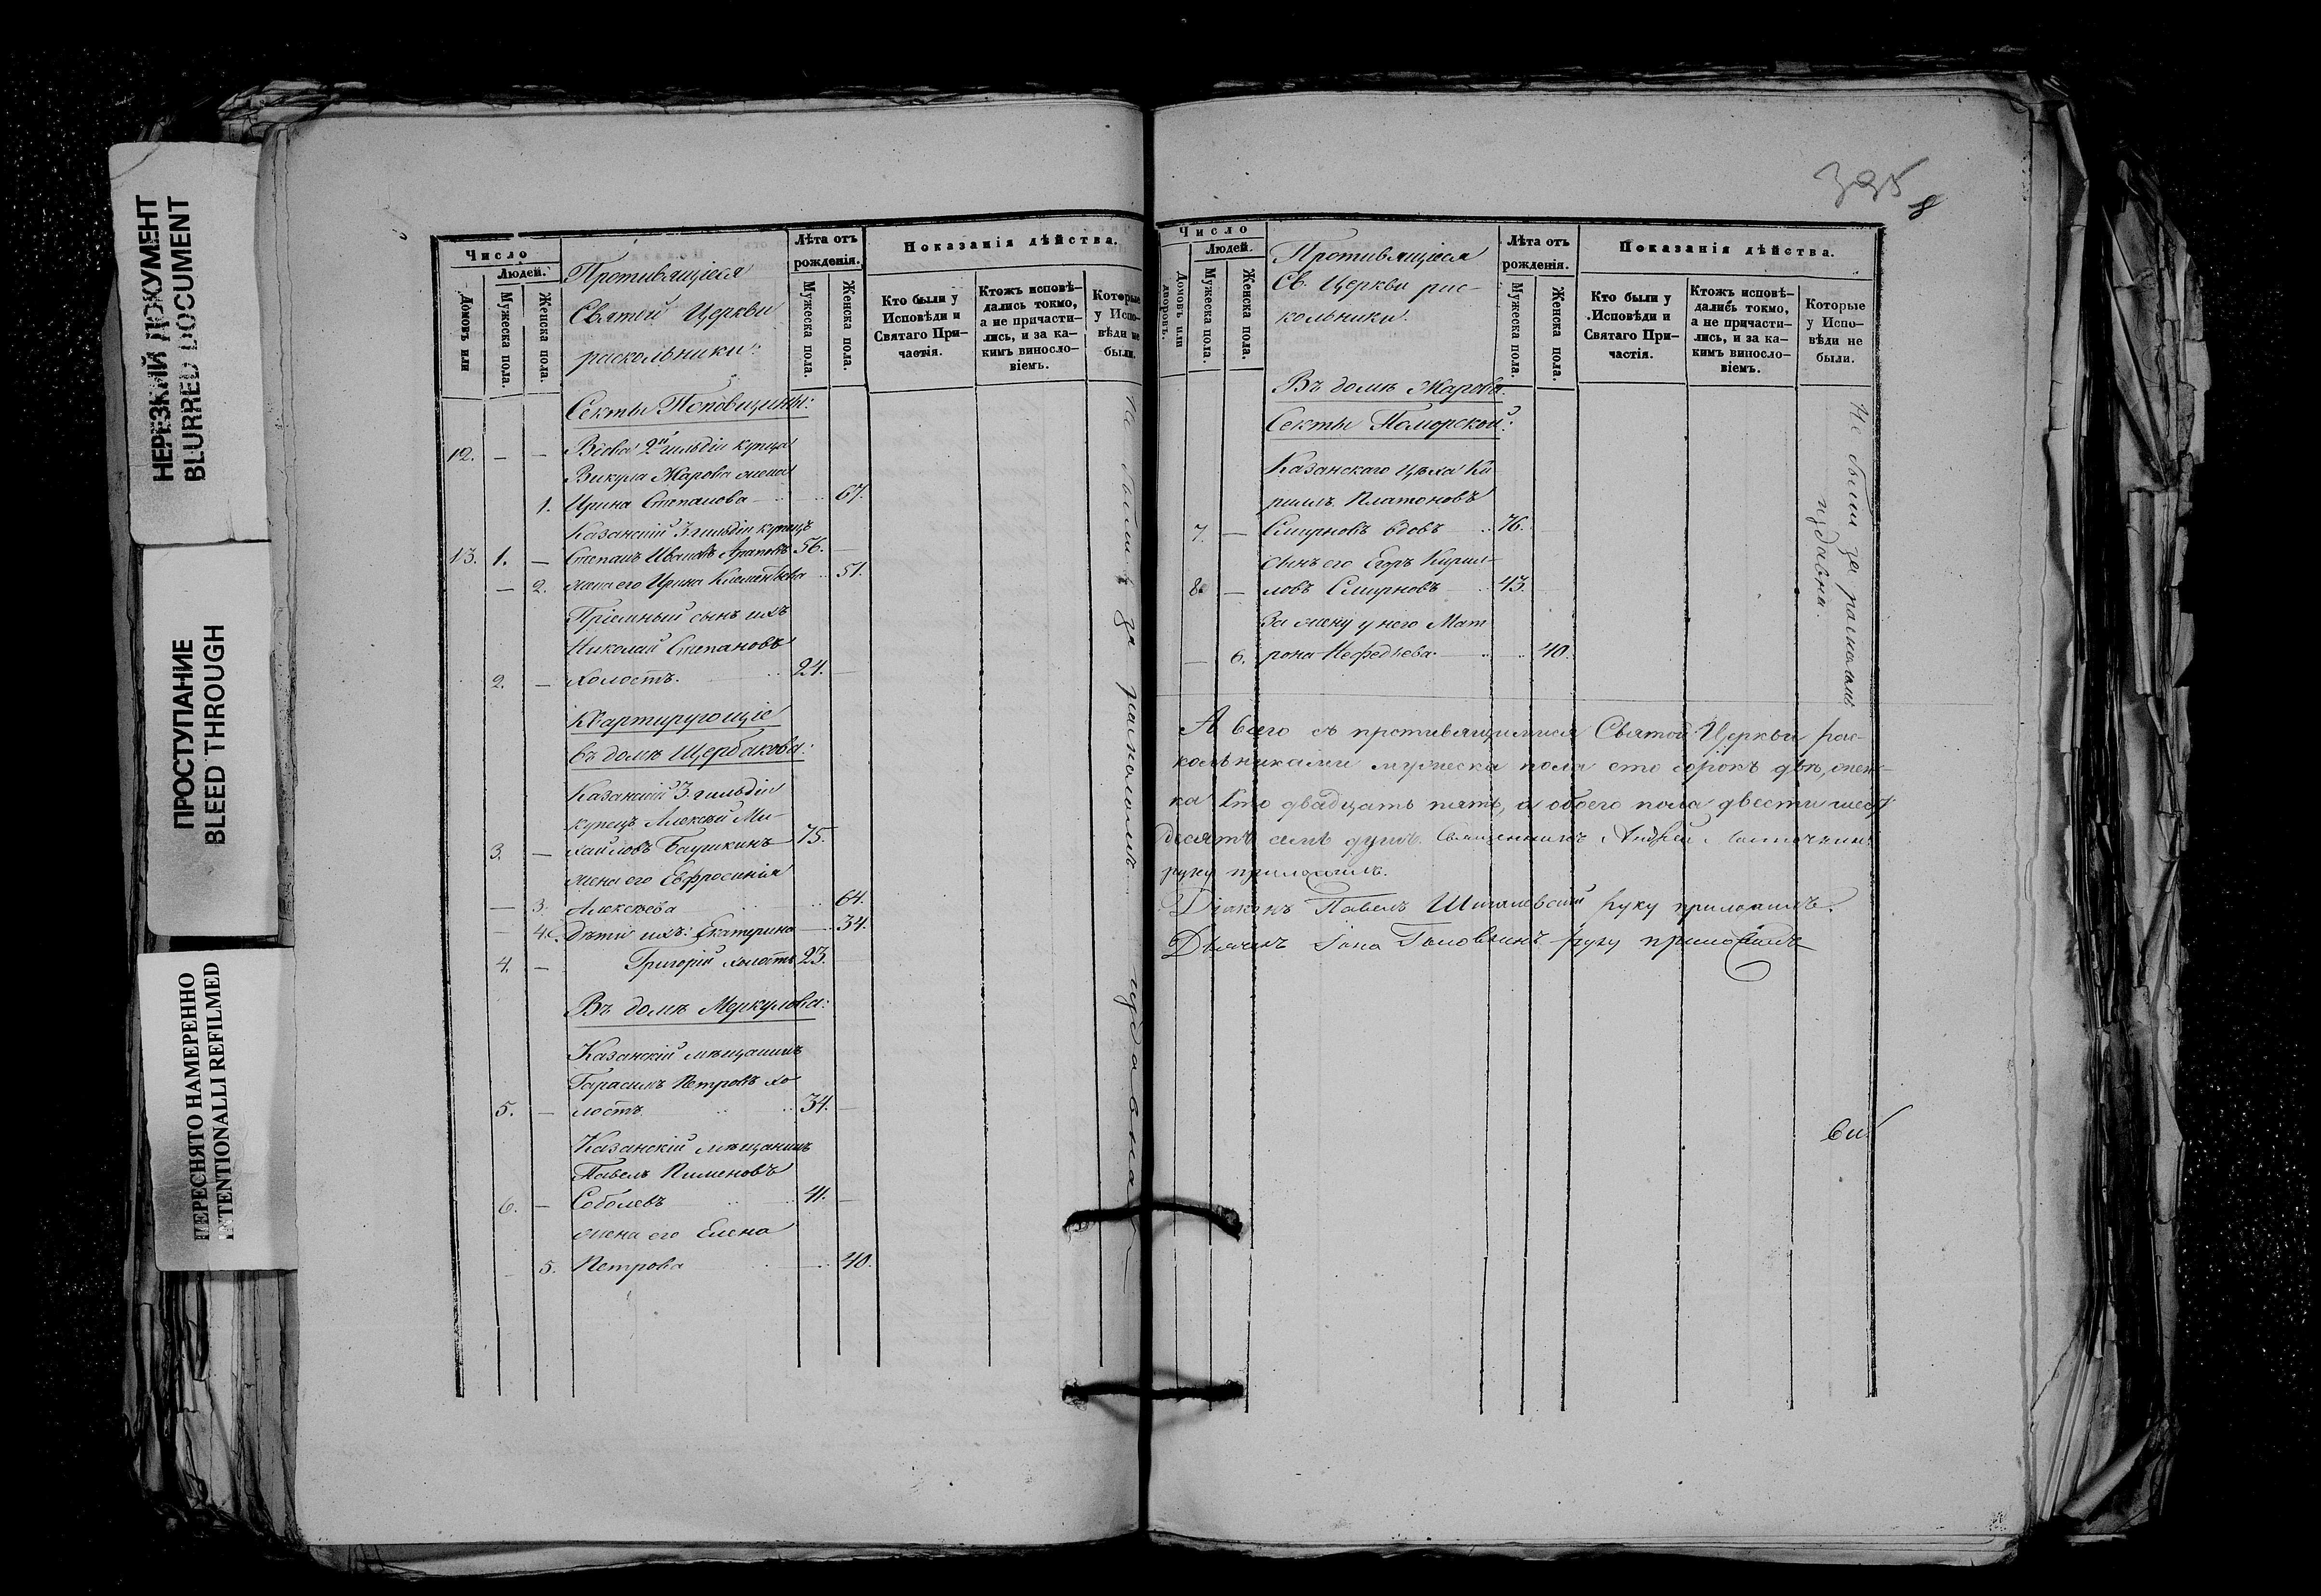 НЕРЕЗКИЙ ДОКУМЕНТ
BLURRED DOCUMENT
ПРОСТУПАНИЕ
BLEED THROUGH
ПЕРЕСНЯТО НАМЕРЕННО
INTENTIONALLI REFILMED
Число
Людей.
Домовъ или
Мужеска пола.
Женска пола.
Противящіеся
Святой Церкви
раскольники:
Лѣта отъ
рожденія.
Мужеска пола.
Женска пола.
Показанія дѣйства.
Кто были у
Исповѣди и
Святаго При-
частія.
Ктожъ исповѣ-
дались токмо,
а не причасти-
лись, и за ка-
кимъ виносло-
віемъ.
Которые
у Испо-
вѣди не
были.
Секты Поповщины:
12. — — Вдова 2й гильдіи купца
Викула Жарова жена
1. Ирина Степанова 67.
Казанскій 3. гильдіи купецъ
13. 1. — Степанъ Ивановъ Араповъ 56. —
— 2. жена его Ирина Климентьева 51.
Пріемный сынъ ихъ
Николай Степановъ
2. — холостъ. 24. —
Квартирующіе
въ домѣ Щербакова:
Казанскій 3. гильдіи
купецъ Алексѣй Ми-
3. — хайловъ Баушкинъ 75.
жена его Евфросинія
— 3. Алексѣева 64.
— 4. Дѣти ихъ: Екатерина 34.
4. — Григорій холостъ 23.
Въ домѣ Меркулова:
Казанскій мѣщанинъ
Гарасимъ Петровъ хо
5. — лостъ 34. —
Казанскій мѣщанинъ
Павелъ Пименовъ
6. — Соболевъ 41. —
жена его Елена
— 5. Петрова 40.
Не были за расколомъ издавна
395
8
Число
Людей.
Домовъ или
дворовъ.
Мужеска пола.
Женска пола.
Противящіеся
Св. Церкви рас-
кольники:
Лѣта отъ
рожденія.
Мужеска пола.
Женска пола.
Показанія дѣйства.
Кто были у
Исповѣди и
Святаго При-
частія.
Ктожъ исповѣ-
дались токмо,
а не причасти-
лись, и за ка-
кимъ виносло-
віемъ.
Которые
у Испо-
вѣди не
были.
Въ домѣ Жарова:
Секты Поморской:
Казанскаго цѣха Ки-
риллъ Платоновъ
7. — Смирновъ вдовъ 76.
сынъ его Егоръ Кирил-
8. — ловъ Смирновъ 43.
За жену у него Мат
— 6. рона Нефедьева 40.
Не были за расколомъ
издавна.
А всего съ противящимися Святой Церкви рас-
кольниками мужеска пола сто сорокъ двѣ, женс-
ка сто двадцать пять, а обоего пола двести шесть
десятъ семь душъ. Священникъ Андрей
руку приложилъ.
Діаконъ Павелъ руку приложилъ.
Дьячекъ Іона Головкинъ руку приложилъ